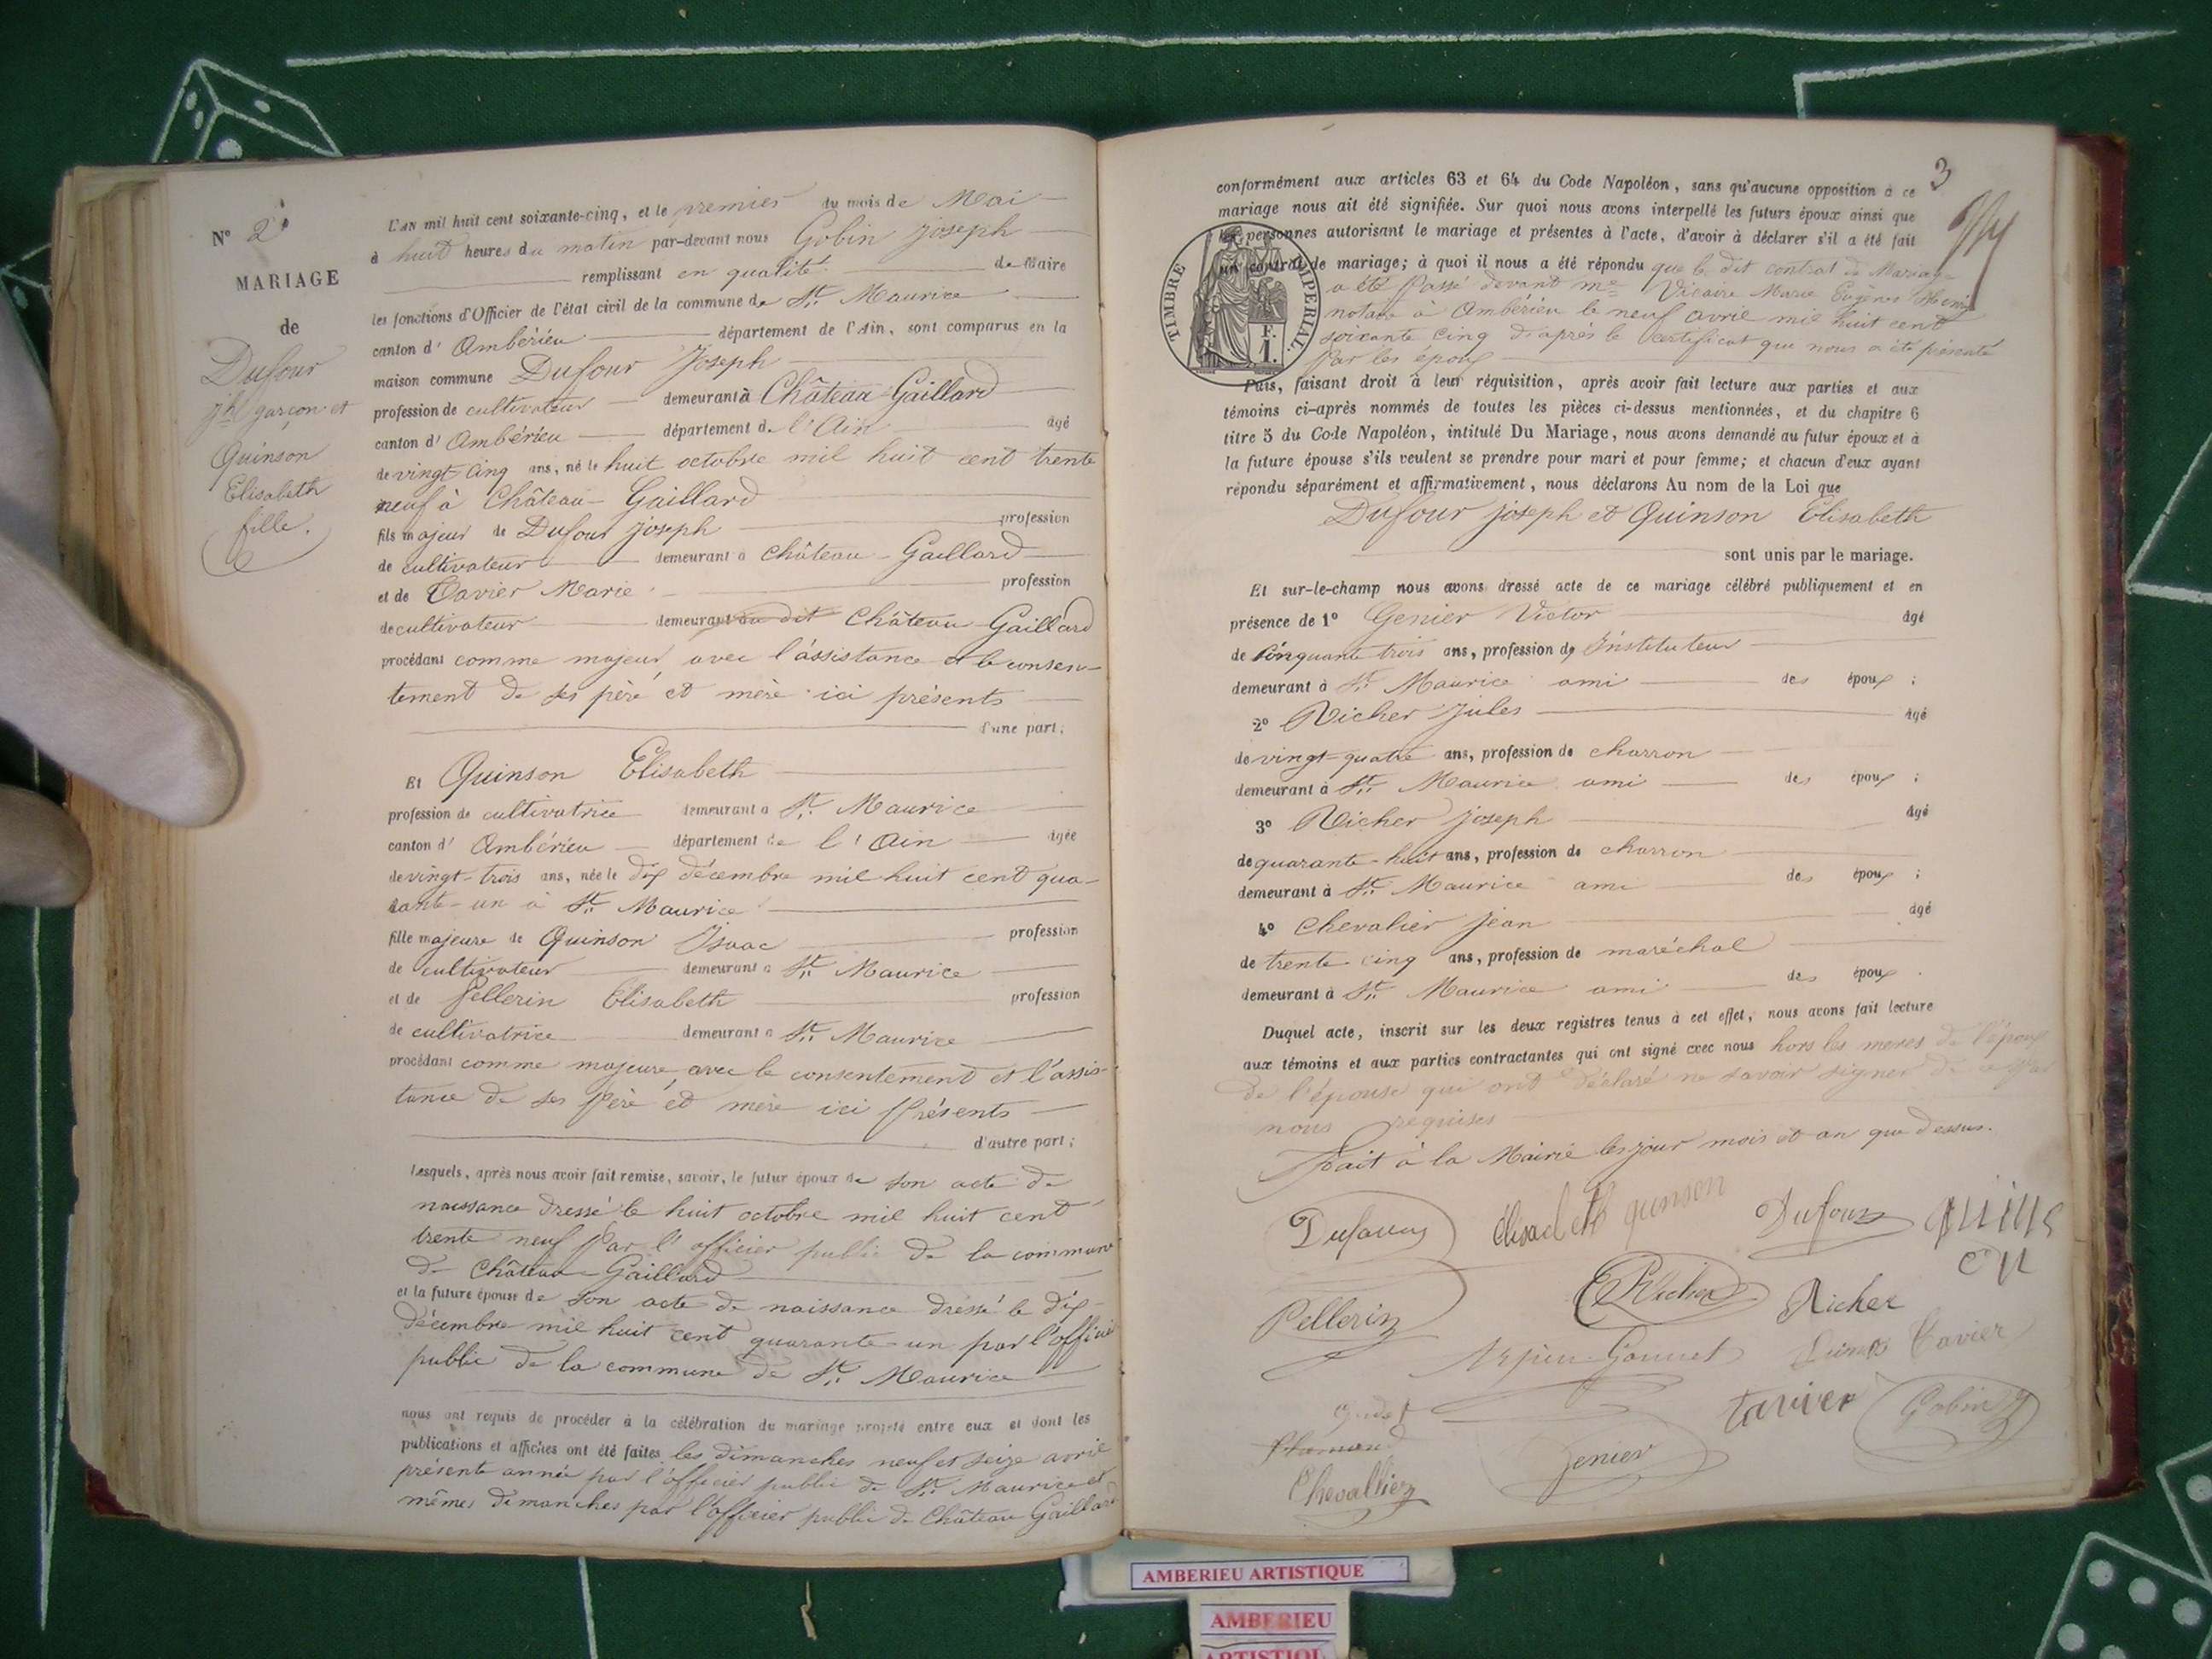 N° 2
MARIAGE
de
Dufour
jh garçon et
Quinson
Elisabeth
fille.
L'AN mil huit cent soixante-cinq, et le premier du mois de Mai
à huit heures du matin par-devant nous Gobin Joseph
remplissant en qualité de Maire
les fonctions d'Officier de l'état civil de la commune de St. Maurice
canton d' Ambérieu département de l'Ain, sont comparus en la
maison commune Dufour Joseph
profession de cultivateur demeurant à Château-Gaillard
canton d' Ambérieu département de l'Ain âgé
de vingt-cinq ans, né le huit octobre mil huit cent trente
neuf à Château-Gaillard
fils majeur de Dufour Joseph profession
de cultivateur demeurant à Château-Gaillard
et de Tavier Marie profession
de cultivateur demeurant au dit Château-Gaillard
procédant comme majeur, avec l'assistance et le consen-
tement de ses père et mère ici présents
d'une part;
Et Quinson Elisabeth
profession de cultivatrice demeurant à St. Maurice
canton d' Ambérieu département de l'Ain âgée
de vingt-trois ans, née le dix décembre mil huit cent qua-
rante-un à St. Maurice
fille majeure de Quinson Isaac profession
de cultivateur demeurant à St. Maurice
et de Pellerin Elisabeth profession
de cultivatrice demeurant à St. Maurice
procédant comme majeure, avec le consentement et l'assis-
tance de ses père et mère ici présents
d'autre part;
Lesquels, après nous avoir fait remise, savoir, le futur époux de son acte de
naissance dressé le huit octobre mil huit cent
trente neuf par l'officier public de la commune
de Château-Gaillard
et la future épouse de son acte de naissance dressé le dix
décembre mil huit cent quarante-un par l'officier
public de la commune de St. Maurice
nous ont requis de procéder à la célébration du mariage projeté entre eux et dont les
publications et affiches ont été faites les dimanches neuf et seize avril
présente année par l'officier public de St. Maurice et
mêmes dimanches par l'officier public de Château Gaillard
3
conformément aux articles 63 et 64 du Code Napoléon, sans qu'aucune opposition à ce
mariage nous ait été signifiée. Sur quoi nous avons interpellé les futurs époux ainsi que
les personnes autorisant le mariage et présentes à l'acte, d'avoir à déclarer s'il a été fait
un contrat de mariage; à quoi il nous a été répondu que le dit contrat de Mariage
a été passé devant me Vicaire Marie Eugène
notaire à Ambérieu le neuf avril mil huit cent
soixante cinq d'après le certificat que nous a été présenté
par les époux
TIMBRE IMPERIAL
F.
1.
Puis, faisant droit à leur réquisition, après avoir fait lecture aux parties et aux
témoins ci-après nommés de toutes les pièces ci-dessus mentionnées, et du chapitre 6
titre 5 du Code Napoléon, intitulé Du Mariage, nous avons demandé au futur époux et à
la future épouse s'ils veulent se prendre pour mari et pour femme; et chacun d'eux ayant
répondu séparément et affirmativement, nous déclarons Au nom de la Loi que
Dufour Joseph et Quinson Elisabeth
sont unis par le mariage.
Et sur-le-champ nous avons dressé acte de ce mariage célébré publiquement et en
présence de 1° Genier Victor âgé
de Cinquante trois ans, profession d' Instituteur
demeurant à St. Maurice ami des époux;
2° Richer Jules âgé
de vingt-quatre ans, profession de charron
demeurant à St. Maurice ami des époux;
3° Richer Joseph âgé
de quarante-huit ans, profession de charron
demeurant à St. Maurice ami des époux;
4° Chevalier Jean âgé
de trente cinq ans, profession de maréchal
demeurant à St. Maurice ami des époux.
Duquel acte, inscrit sur les deux registres tenus à cet effet, nous avons fait lecture
aux témoins et aux parties contractantes qui ont signé avec nous hors les meres de l'époux
de l'épouse qui ont déclaré ne savoir signer de ce par
nous requises
Fait à la Mairie les jour mois et an que dessus.
Dufour Elisabeth quinson Dufour quins
on
Pellerin Richer Richer
Gonnet Tavier
tavier Gobin
Genier
Chevallier
AMBERIEU ARTISTIQUE
AMBERIEU
ARTISTIQUE